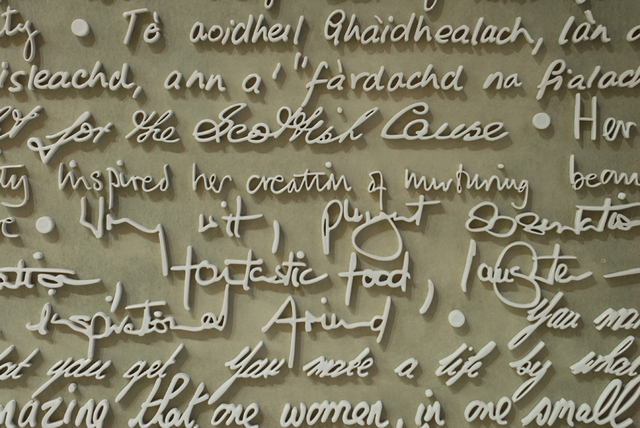 ty • Tè aoidheil Ghàidhealach, làn a
isleachd, ann a' "fàrdachd na fialach
for the Scottish Cause • Her
ty inspired her creation of nurturing beau
e • Very wit,
fantastic food, laughter –
inspirational • You ma
at you get You make a life by what
mazing that one women, in one small